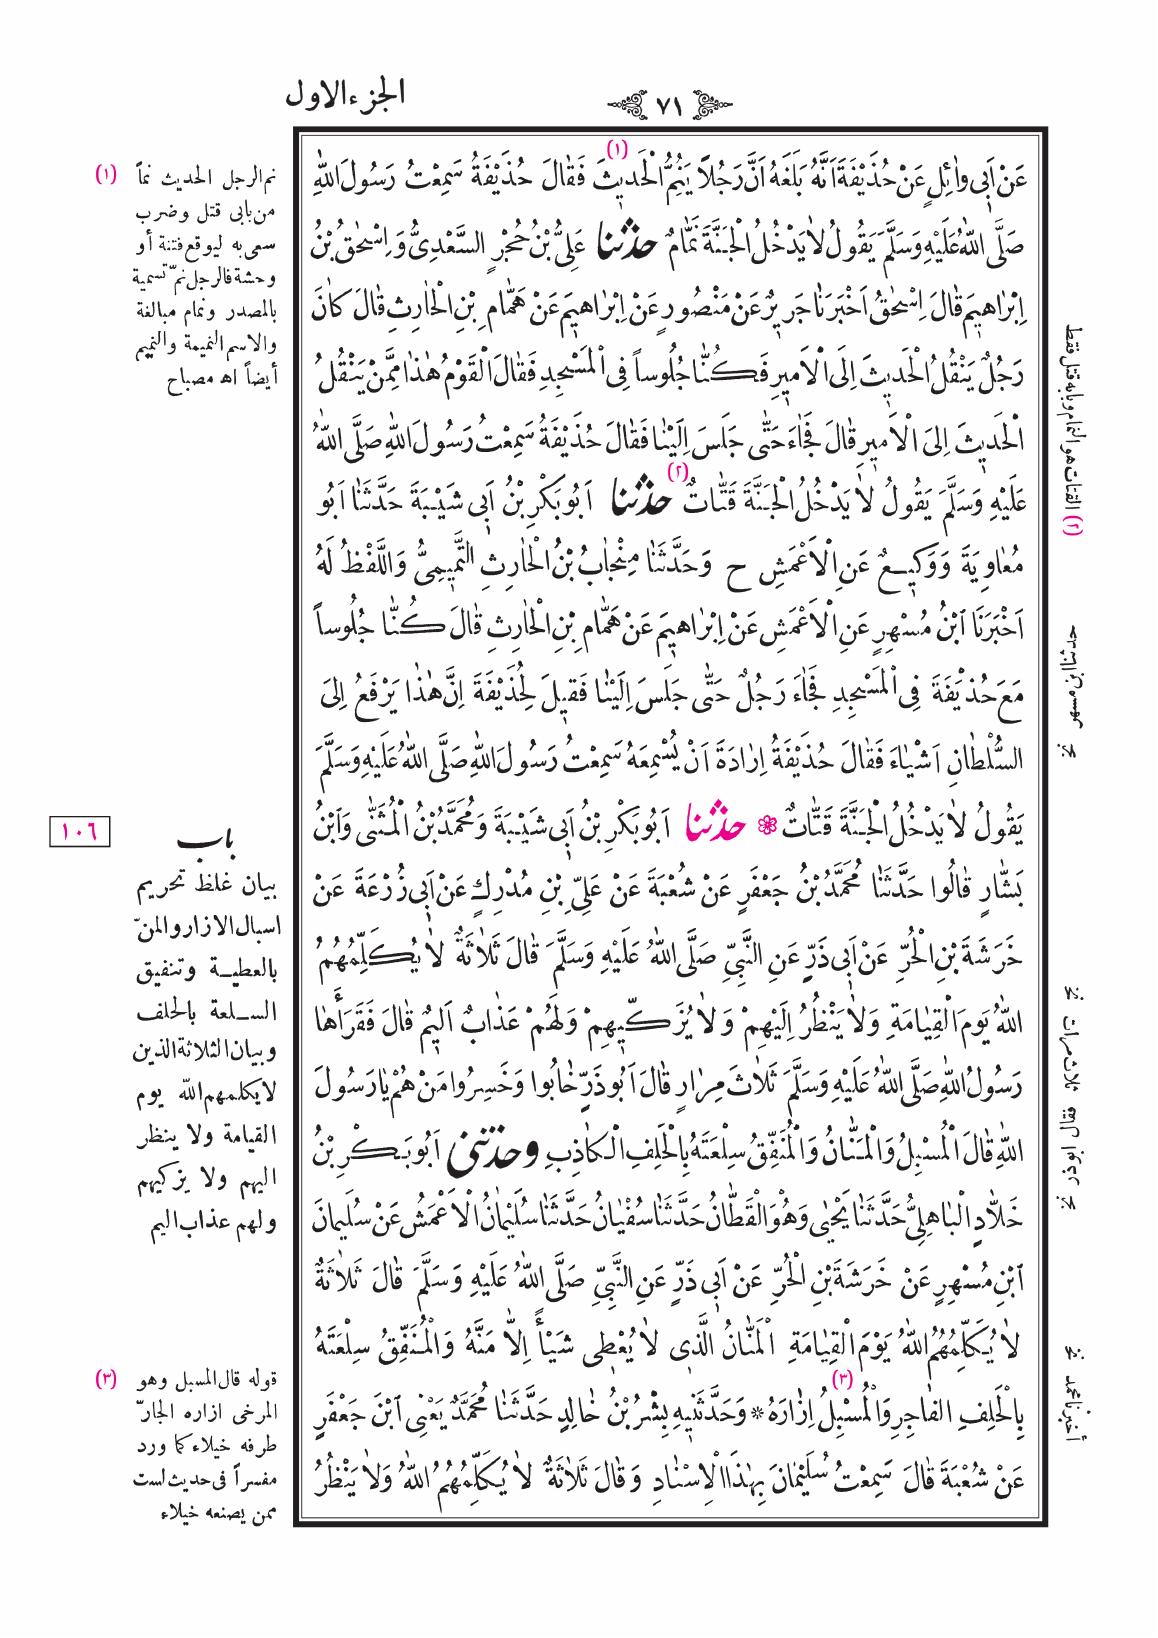 ٧١
الجزء الاول
عَنْ اَبِى وٰائِلٍ عَنْ حُذَيْفَةَ اَنَّهُ بَلَغَهُ اَنَّ رَجُلاً يَنُمُّ (١) الْحَدٖيثَ فَقٰالَ حُذَيْفَةُ سَمِعْتُ رَسُولَ اللّٰهِ
صَلَّى اللّٰهُ عَلَيْهِ وَسَلَّمَ يَقُولُ لاٰ يَدْخُلُ الْجَنَّةَ نَمّٰامٌ حدثنا عَلِىُّ بْنُ حُجْرٍ السَّعْدِىُّ وَ اِسْحٰقُ بْنُ
اِبْرٰاهٖيمَ قٰالَ اِسْحٰقُ اَخْبَرَنٰا جَرٖيرٌ عَنْ مَنْصُورٍ عَنْ اِبْرٰاهٖيمَ عَنْ هَمّٰامِ بْنِ الْحٰارِثِ قٰالَ كٰانَ
رَجُلٌ يَنْقُلُ الْحَدٖيثَ اِلَى الْاَمٖيرِ فَكُنّٰا جُلُوساً فِى الْمَسْجِدِ فَقٰالَ الْقَوْمُ هٰذٰا مِمَّنْ يَنْقُلُ
الْحَدٖيثَ اِلىَ الْاَمٖيرِ قٰالَ فَجٰاءَ حَتّٰى جَلَسَ اِلَيْنٰا فَقٰالَ حُذَيْفَةُ سَمِعْتُ رَسُولَ اللّٰهِ صَلَّى اللّٰهُ
عَلَيْهِ وَسَلَّمَ يَقُولُ لاٰ يَدْخُلُ الْجَنَّةَ قَتّٰاتٌ (٢) حدثنا اَبُو بَكْرِ بْنُ اَبٖى شَيْبَةَ حَدَّثَنٰا اَبُو
مُعٰاوِيَةَ وَوَكٖيعٌ عَنِ الْاَعْمَشِ ح وَحَدَّثَنٰا مِنْجٰابُ بْنُ الْحٰارِثِ التَّمٖيمِىُّ وَاللَّفْظُ لَهُ
اَخْبَرَنَا ابْنُ مُسْهِرٍ عَنِ الْاَعْمَشِ عَنْ اِبْرٰاهٖيمَ عَنْ هَمّٰامِ بْنِ الْحٰارِثِ قٰالَ كُنّٰا جُلُوساً
مَعَ حُذَيْفَةَ فِى الْمَسْجِدِ فَجٰاءَ رَجُلٌ حَتّٰى جَلَسَ اِلَيْنٰا فَقٖيلَ لِحُذَيْفَةَ اِنَّ هٰذٰا يَرْفَعُ اِلىَ
السُّلْطٰانِ اَشْيٰاءَ فَقٰالَ حُذَيْفَةُ اِرٰادَةَ اَنْ يُسْمِعَهُ سَمِعْتُ رَسُولَ اللّٰهِ صَلَّى اللّٰهُ عَلَيْهِ وَسَلَّمَ
يَقُولُ لاٰ يَدْخُلُ الْجَنَّةَ قَتّٰاتٌ ❁ حدثنا اَبُو بَكْرِ بْنُ اَبٖى شَيْبَةَ وَمُحَمَّدُ بْنُ الْمُثَنّٰى وَابْنُ
بَشّٰارٍ قٰالُوا حَدَّثَنٰا مُحَمَّدُ بْنُ جَعْفَرٍ عَنْ شُعْبَةَ عَنْ عَلِىِّ بْنِ مُدْرِكٍ عَنْ اَبٖى زُرْعَةَ عَنْ
خَرَشَةَ بْنِ الْحُرِّ عَنْ اَبٖى ذَرٍّ عَنِ النَّبِىِّ صَلَّى اللّٰهُ عَلَيْهِ وَسَلَّمَ قٰالَ ثَلاٰثَةٌ لاٰ يُكَلِّمُهُمُ
اللّٰهُ يَوْمَ الْقِيٰامَةِ وَلاٰ يَنْظُرُ اِلَيْهِمْ وَلاٰ يُزَكّٖيهِمْ وَلَهُمْ عَذٰابٌ اَلٖيمٌ قٰالَ فَقَرَأَهٰا
رَسُولُ اللّٰهِ صَلَّى اللّٰهُ عَلَيْهِ وَسَلَّمَ ثَلاٰثَ مِرٰارٍ قٰالَ اَبُو ذَرٍّ خٰابُوا وَخَسِرُوا مَنْ هُمْ يٰا رَسُولَ
اللّٰهِ قٰالَ الْمُسْبِلُ وَالْمَنّٰانُ وَالْمُنَفِّقُ سِلْعَتَهُ بِالْحَلِفِ الْكٰاذِبِ وحدثنى اَبُو بَكْرِ بْنُ
خَلاّٰدٍ الْبٰاهِلِىُّ حَدَّثَنٰا يَحْيٰى وَهُوَ الْقَطّٰانُ حَدَّثَنٰا سُفْيٰانُ حَدَّثَنٰا سُلَيْمٰانُ الْاَعْمَشُ عَنْ سُلَيْمٰانَ
ابْنِ مُسْهِرٍ عَنْ خَرَشَةَ بْنِ الْحُرِّ عَنْ اَبٖى ذَرٍّ عَنِ النَّبِىِّ صَلَّى اللّٰهُ عَلَيْهِ وَسَلَّمَ قٰالَ ثَلاٰثَةٌ
لاٰ يُكَلِّمُهُمُ اللّٰهُ يَوْمَ الْقِيٰامَةِ الْمَنّٰانُ الَّذٖى لاٰ يُعْطٖى شَيْأً اِلاّٰ مَنَّهُ وَالْمُنَفِّقُ سِلْعَتَهُ
بِالْحَلِفِ الفٰاجِرِ وَالْمُسْبِلُ (٣) اِزٰارَهُ * وَحَدَّثَنٖيهِ بِشْرُ بْنُ خٰالِدٍ حَدَّثَنٰا مُحَمَّدٌ يَعْنِى ابْنَ جَعْفَرٍ
عَنْ شُعْبَةَ قٰالَ سَمِعْتُ سُلَيْمٰانَ بِهٰذَا الْاِسْنٰادِ وَ قٰالَ ثَلاٰثَةٌ لاٰ يُكَلِّمُهُمُ اللّٰهُ وَلاٰ يَنْظُرُ
(١) نم الرجل الحديث نماً
من بابى قتل وضرب
سعى به ليوقع فتنة أو
وحشة فالرجل نمّ تسمية
بالمصدر ونمام مبالغة
والاسم النميمة والنميم
أيضاً اه مصباح
١٠٦
باب
بيان غلظ تحريم
اسبال الازار والمنّ
بالعطية وتنفيق
السلعة بالحلف
وبيان الثلاثة الذين
لا يكلمهم الله يوم
القيامة ولا ينظر
اليهم ولا يزكيهم
ولهم عذاب اليم
(٣) قوله قال المسبل وهو
المرخى ازاره الجارّ
طرفه خيلاء كما ورد
مفسراً فى حديث لست
ممن يصنعه خيلاء
(٢) القتات هو النمام وبابه قتل فقط
نخ ثلاث مرات فقال ابوذر نخ
نخ أخبرنا محمد